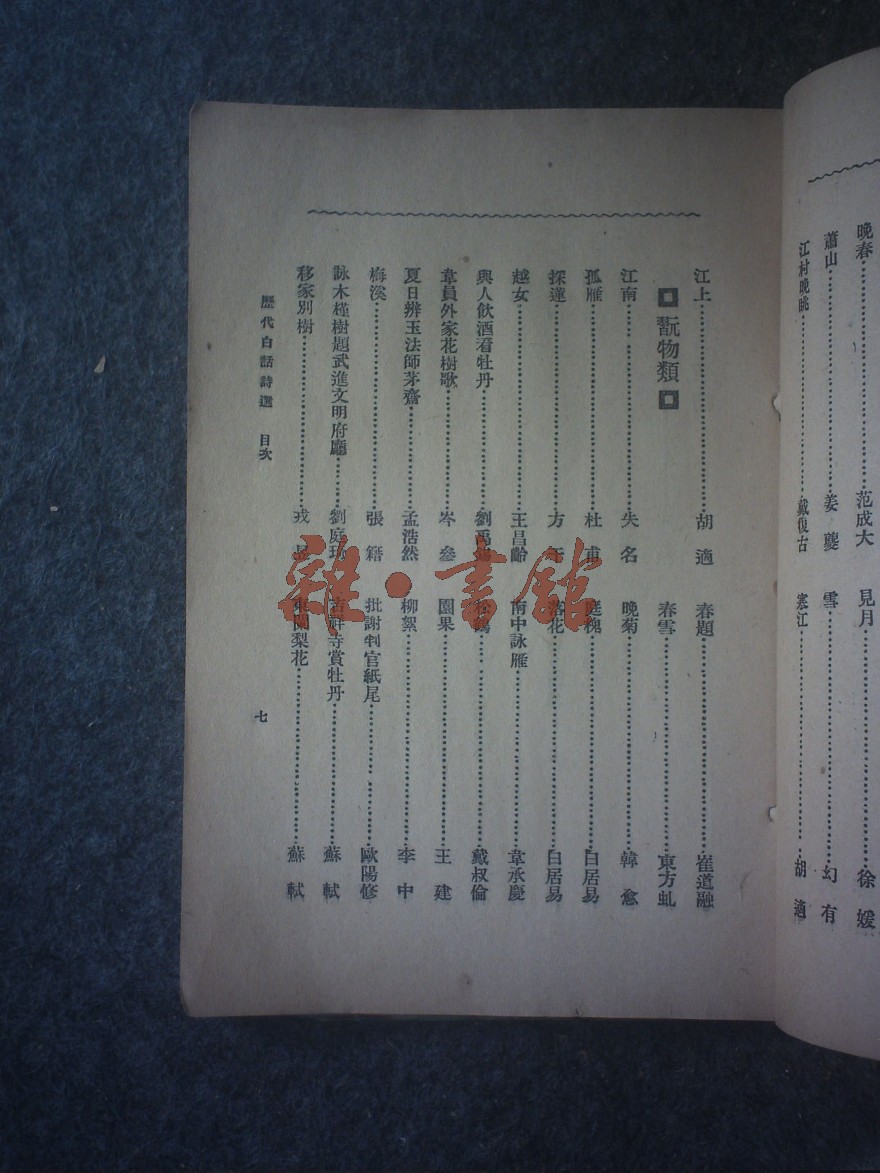 晚春……范成大 見月……徐媛
蕭山……姜夔 雪……幻有
江村晚眺……戴復古 寒江……胡適
江上……胡適 春題……崔道融
翫物類 春雪……東方虬
江南……失名 晚菊……韓愈
孤雁……杜甫 庭槐……白居易
採蓮……方 落花……白居易
越女……王昌齡 南中詠雁……韋承慶
與人飲酒看牡丹……劉禹錫 松鶴……戴叔倫
韋員外家花樹歌……岑參 園果……王建
夏日辨玉法師茅齋……孟浩然 柳絮……李中
梅溪……張籍 批謝判官紙尾……歐陽修
詠木槿樹題武進文明府廳……劉庭琦 吉祥寺賞牡丹……蘇軾
移家別樹……戎昱 東闌梨花……蘇軾
歷代白話詩選 目次 七
雜·書館